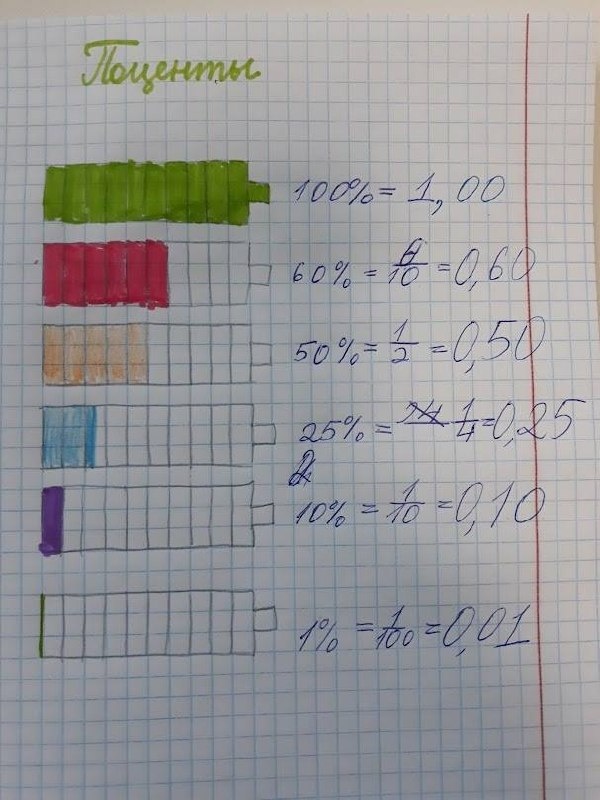 Поценты
100% = 1,00
60% = 6/10 = 0,60
50% = 1/2 = 0,50
25% = 1/4 = 0,25
10% = 1/10 = 0,10
1% = 1/100 = 0,01